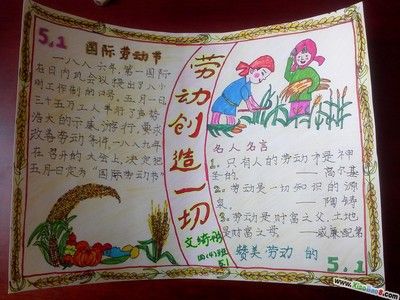 5.1
国际劳动节
一八八六年,第一国际
在日内瓦会议提出了八小
时工作制的口号,五月一日
三十五万工人举行了声势
浩大的示威游行,要求
改善劳动条件,一八八九年
在召开的大会上,决定把
五月一日定为“国际劳动节”
劳动创造一切
文绮彤
四(4)班
名人名言
1.只有人的劳动才是神
圣的。——高尔基
2.劳动是一切知识的源
泉。——陶铸
3.劳动是财富之父,土地
是财富之母——威廉配第
赞美劳动 的
5.1
www.XiaoBao8.com